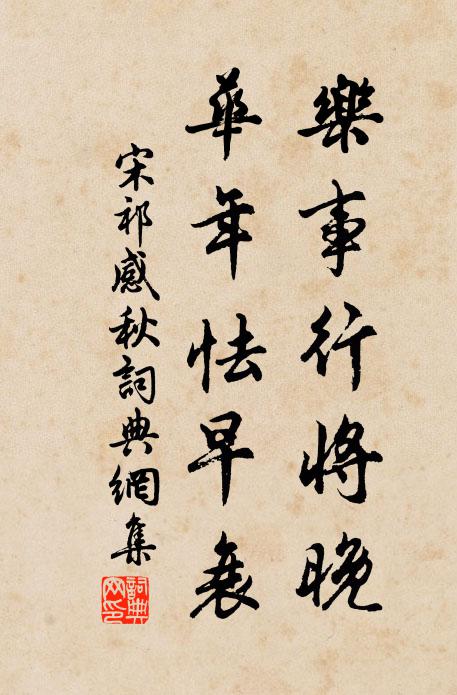 樂事行將晚
華年怯早衰
宋祁感秋詞典網集
詞典網印